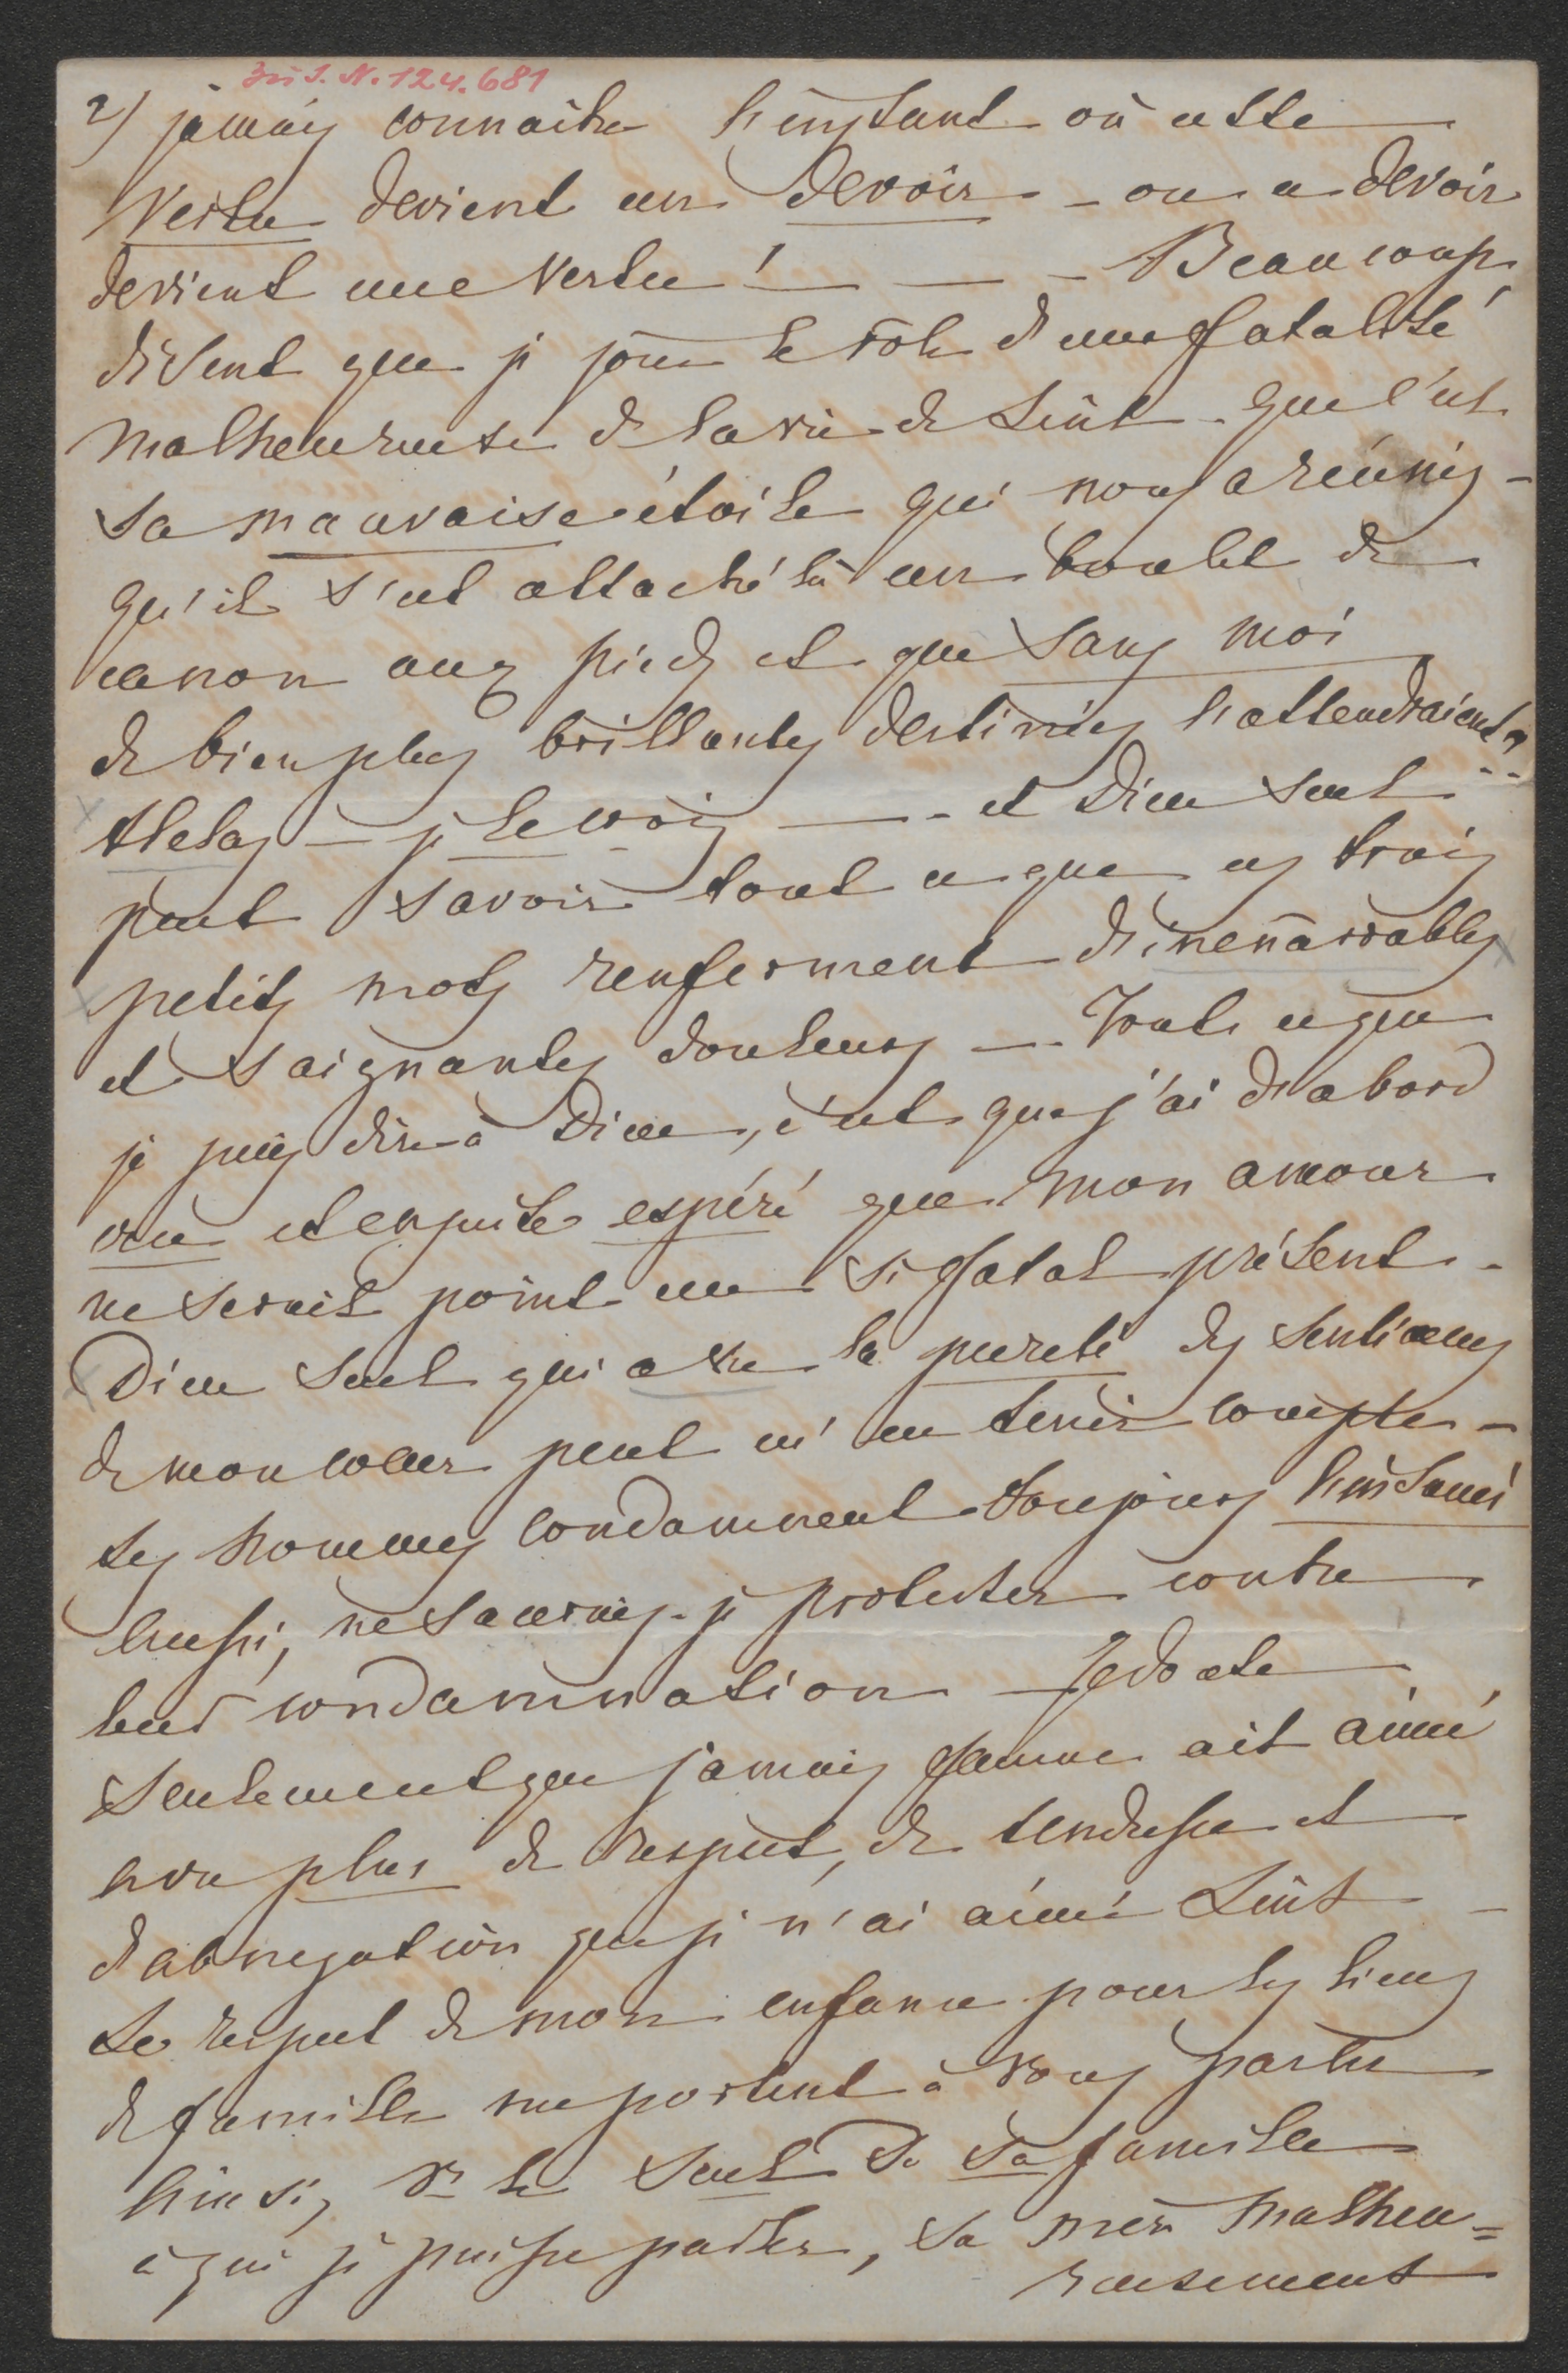 Zu I. N. 124.681
2) jamais connaître l'instant où cette
Vertu devient un devoir – ou ce devoir
devient une Vertu ! — – Beaucoup
disent que je joue le rôle d'une fatalité
malheureuse d la vie de Liszt – que c'est
sa mauvaise étoile qui nous a réunis –
qu'il s'est attaché là un boulet de
canon aux pieds et que sans moi
de bien plus brillantes destinées l'attendraient!
Helas – je le crois — – et Dieu seul
peut savoir tout ce que ces trois
petits mots renferment d'inenarrables
et saignantes douleurs — Tout ce que
je puis dire à Dieu, c'est que j'ai d'abord
cru et ensuite espéré que mon amour
ne serait point un si fatal présent –
Dieu seul qui a vu la pureté des sentimens
de mon coeur peut m'en tenir compte –
les hommes condamnent toujours
Aussi, ne saurais-je protester contre
leur condamnation – Je doute
seulement que jamais femme ait aimé
avec plus de respect, de tendresse et
d'abnegation que je n'ai aimé Liszt –
Le respect de mon enfance pour les liens
de famille me portent à vous parler
Ainsi, Vs le seul de sa famille
à qui je puisse parler, sa mère malheu=
reusement